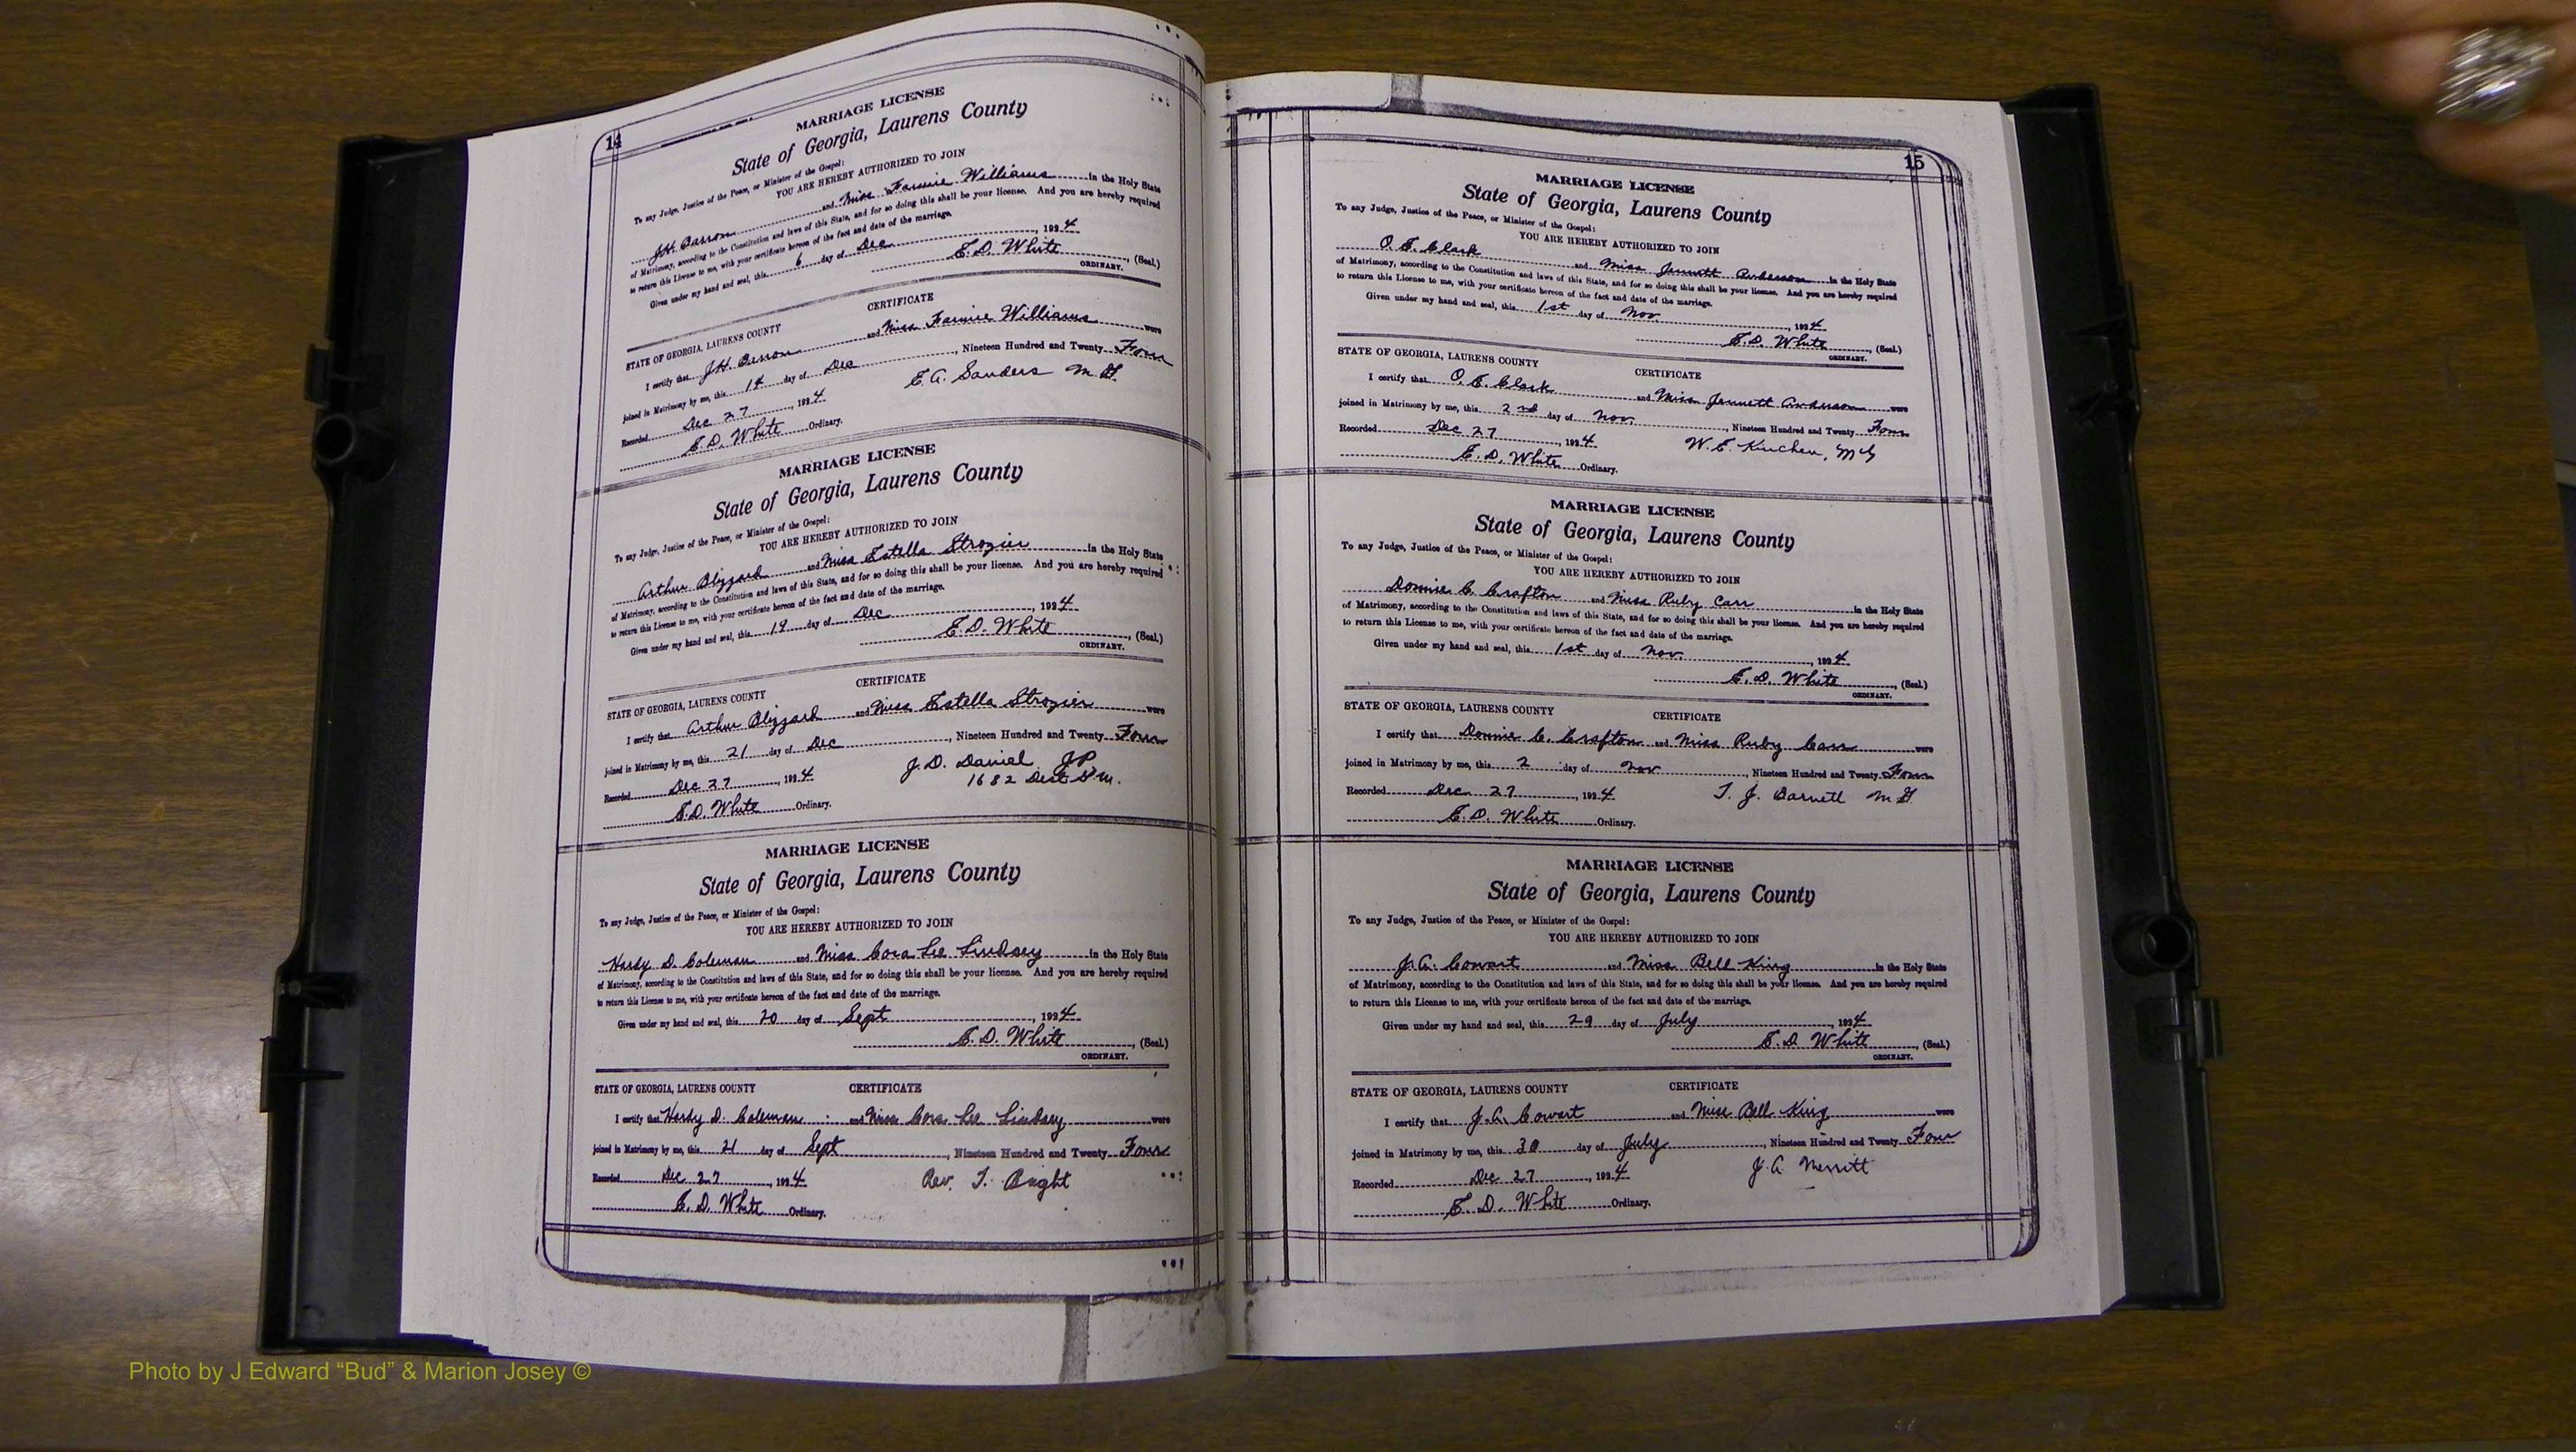 14
MARRIAGE LICENSE
State of Georgia, Laurens County
To any Judge, Justice of the Peace, or Minister of the Gospel:
YOU ARE HEREBY AUTHORIZED TO JOIN
J.H. Barron and Miss Fannie Williams in the Holy State
of Matrimony, according to the Constitution and laws of this State, and for so doing this shall be your license. And you are hereby required
to return this License to me, with your certificate hereon of the fact and date of the marriage.
Given under my hand and seal, this 6 day of Dec, 1924
E.D. White, (Seal.)
ORDINARY.
CERTIFICATE
STATE OF GEORGIA, LAURENS COUNTY
I certify that J.H. Barron and Miss Fannie Williams were
joined in Matrimony by me, this 14 day of Dec, Nineteen Hundred and Twenty Four
Recorded Dec 27, 1924 E.A. Sanders M.G.
E.D. White Ordinary.
MARRIAGE LICENSE
State of Georgia, Laurens County
To any Judge, Justice of the Peace, or Minister of the Gospel:
YOU ARE HEREBY AUTHORIZED TO JOIN
Arthur Blizzard and Miss Estella Strozier in the Holy State
of Matrimony, according to the Constitution and laws of this State, and for so doing this shall be your license. And you are hereby required
to return this License to me, with your certificate hereon of the fact and date of the marriage.
Given under my hand and seal, this 19 day of Dec, 1924
E.D. White, (Seal.)
ORDINARY.
CERTIFICATE
STATE OF GEORGIA, LAURENS COUNTY
I certify that Arthur Blizzard and Miss Estella Strozier were
joined in Matrimony by me, this 21 day of Dec, Nineteen Hundred and Twenty Four
Recorded Dec 27, 1924 J.D. Daniel JP
1682 Dist G.M.
E.D. White Ordinary.
MARRIAGE LICENSE
State of Georgia, Laurens County
To any Judge, Justice of the Peace, or Minister of the Gospel:
YOU ARE HEREBY AUTHORIZED TO JOIN
Hardy D. Coleman and Miss Cora Lee Lindsey in the Holy State
of Matrimony, according to the Constitution and laws of this State, and for so doing this shall be your license. And you are hereby required
to return this License to me, with your certificate hereon of the fact and date of the marriage.
Given under my hand and seal, this 20 day of Sept, 1924
E.D. White, (Seal.)
ORDINARY.
STATE OF GEORGIA, LAURENS COUNTY CERTIFICATE
I certify that Hardy D. Coleman and Miss Cora Lee Lindsey were
joined in Matrimony by me, this 21 day of Sept, Nineteen Hundred and Twenty Four
Recorded Dec 27, 1924 Rev. T. Bright
E.D. White Ordinary.
15
MARRIAGE LICENSE
State of Georgia, Laurens County
To any Judge, Justice of the Peace, or Minister of the Gospel:
YOU ARE HEREBY AUTHORIZED TO JOIN
O.E. Clark and Miss Jennett Anderson in the Holy State
of Matrimony, according to the Constitution and laws of this State, and for so doing this shall be your license. And you are hereby required
to return this License to me, with your certificate hereon of the fact and date of the marriage.
Given under my hand and seal, this 1st day of Nov, 1924
E.D. White, (Seal.)
ORDINARY.
STATE OF GEORGIA, LAURENS COUNTY CERTIFICATE
I certify that O.E. Clark and Miss Jennett Anderson were
joined in Matrimony by me, this 2nd day of Nov., Nineteen Hundred and Twenty Four
Recorded Dec 27, 1924 W.E. Kinchen, MG
E.D. White Ordinary.
MARRIAGE LICENSE
State of Georgia, Laurens County
To any Judge, Justice of the Peace, or Minister of the Gospel:
YOU ARE HEREBY AUTHORIZED TO JOIN
Donnie C. Crafton and Miss Ruby Carr in the Holy State
of Matrimony, according to the Constitution and laws of this State, and for so doing this shall be your license. And you are hereby required
to return this License to me, with your certificate hereon of the fact and date of the marriage.
Given under my hand and seal, this 1st day of Nov., 1924
E.D. White, (Seal.)
ORDINARY.
STATE OF GEORGIA, LAURENS COUNTY CERTIFICATE
I certify that Donnie C. Crafton and Miss Ruby Carr were
joined in Matrimony by me, this 2 day of Nov, Nineteen Hundred and Twenty Four
Recorded Dec 27, 1924 T.J. Barnett M.G.
E.D. White Ordinary.
MARRIAGE LICENSE
State of Georgia, Laurens County
To any Judge, Justice of the Peace, or Minister of the Gospel:
YOU ARE HEREBY AUTHORIZED TO JOIN
J.A. Cowart and Miss Bell King in the Holy State
of Matrimony, according to the Constitution and laws of this State, and for so doing this shall be your license. And you are hereby required
to return this License to me, with your certificate hereon of the fact and date of the marriage.
Given under my hand and seal, this 29 day of July, 1924
E.D. White, (Seal.)
ORDINARY.
STATE OF GEORGIA, LAURENS COUNTY CERTIFICATE
I certify that J.A. Cowart and Miss Bell King were
joined in Matrimony by me, this 30 day of July, Nineteen Hundred and Twenty Four
Recorded Dec 27, 1924 J.A. Merritt
E.D. White Ordinary.
Photo by J Edward “Bud” & Marion Josey ©